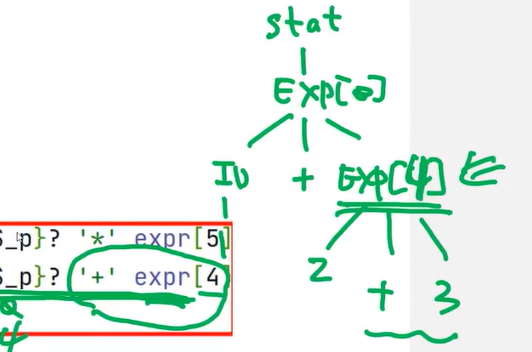 stat
Exp[0]
ID + Exp[4]
S_p}? '*' expr[5]
2 + 3
S_p}? '+' expr[4
4